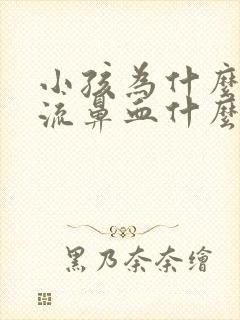 小孩為什麼
流鼻血什麼
黑乃奈奈繪